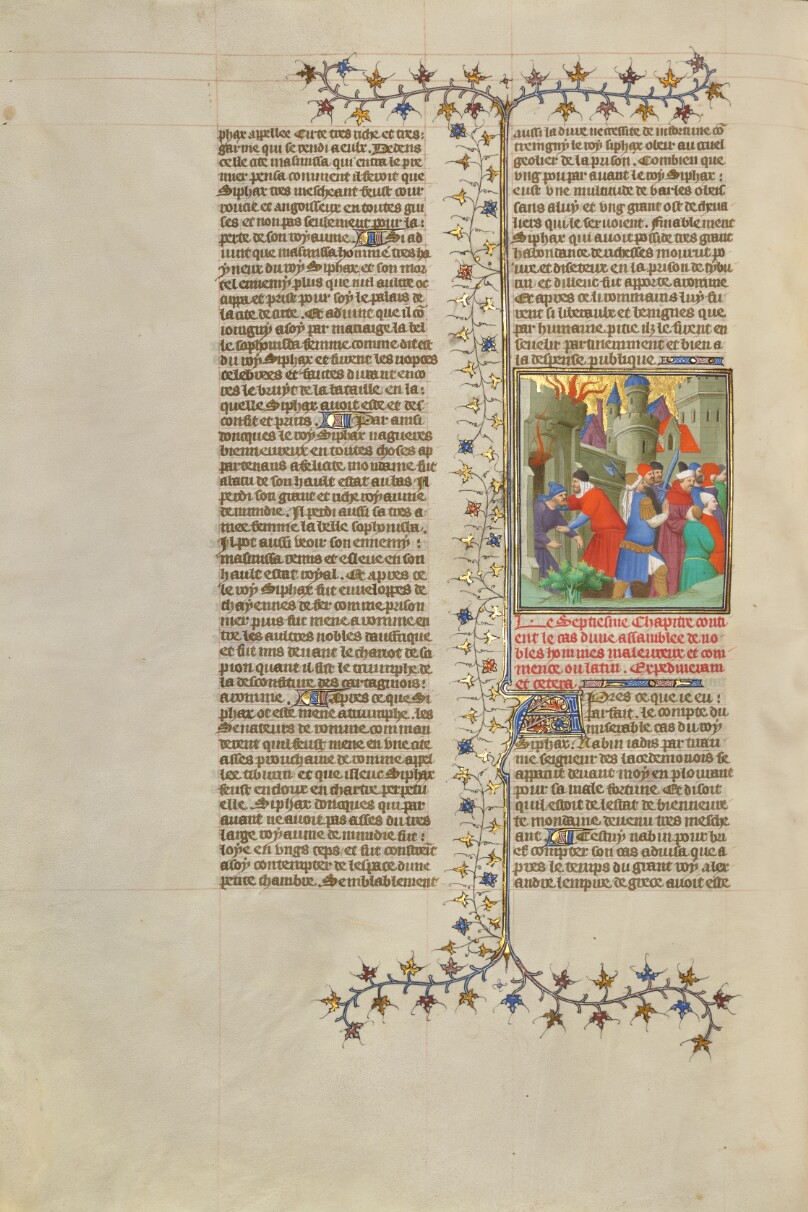 phax appellee Cirte tres riche et tres
garnie qui se rendi a eulx. Dedens
celle cite masinissa qui entra le pre
mier pensa comment il feroit que
Siphax tres mescheant feust cour
roucie et angoisseux en toutes gui
ses et non pas seulement pour la
perte de son royaume. Si ad
uint que masinissa homme tres ha
yneux du roy Siphax et son mor
tel ennemy plus que nul aultre oc
cupa et prist pour soy le palais de
la cite de cirte. Et aduint que il cõ
ioingny a soy par mariaige la bel
le sophonisba femme comme dit est
du roy Siphax et furent les nopces
celebrees et faictes durant enco
res le bruyt de la bataille en la
quelle Siphax auoit este et des
confit et prins. Par ainsi
doncques le roy Siphax nagueres
bieneureux en toutes choses ap
partenans a felicite mondaine fut
abatu de son hault estat au bas Il
perdi son grant et riche royaume
de numidie. Il perdi aussi sa tres a
mee femme la belle sophonisba.
Il pot aussi veoir son ennemy
masinissa venus et esleue en son
hault estat royal. Et apres ce
le roy Siphax fut enuelopes de
chayennes de fer comme prison
nier puis fut mene a romme en
tre les aultres nobles daufrique
et fut mis deuant le chariot de sci
pion quant il fist le triumphe de
la desconfiture des cartaginois
a romme. Apres ce que Si
phax ot este mene a triumphe les
Senateurs de romme comman
derent quil feust mene en vne cite
asses prouchaine de romme appel
lee tiburtin et que illeuc Siphax
feust encloux en chartre perpetu
elle. Siphax doncques qui par
auant ne auoit pas asses du tres
large royaume de numidie fut
loye en vngs ceps et fut constreit
a soy contempter de lespace dune
petite chambre. Semblablement
aussi la dure necessite de infortune cõ
treingny le roy siphax obeir au cruel
geolier de la prison. Combien que
vng pou par auant le roy Siphax
eust vne multitude de varles obeis
sans a luy et vng grant ost de cheua
liers qui le seruoient. Finablement
Siphax qui auoit posside tres grant
habondance de richesses mourut po
ure et diseteux en la prison de tybur
tin et dillenc fut apporte a romme
Et apres ce li rommains luy fu
rent si liberaulx et benignes que
par humaine pitie ilz le firent en
seuelir partinemment et bien a
la despense publique.
Le Septiesme Chapitre conti
ent le cas dune assamblee de no
bles hommes maleureux et com
mence ou latin. Expediueram
et cetera.
Apres ce que ie eu
parfait le compte du
miserable cas du roy
Siphax. Nabin iadis par tiran
nie seigneur des lacedemonois se
apparut deuant moy en plourant
pour sa male fortune. Et disoit
quil estoit de lestat de bieneure
te mondaine deuenu tres mesche
ant. Cestuy nabin pour bri
ef compter son cas aduisa que a
pres le temps du grant roy alex
andre lempire de grece auoit este